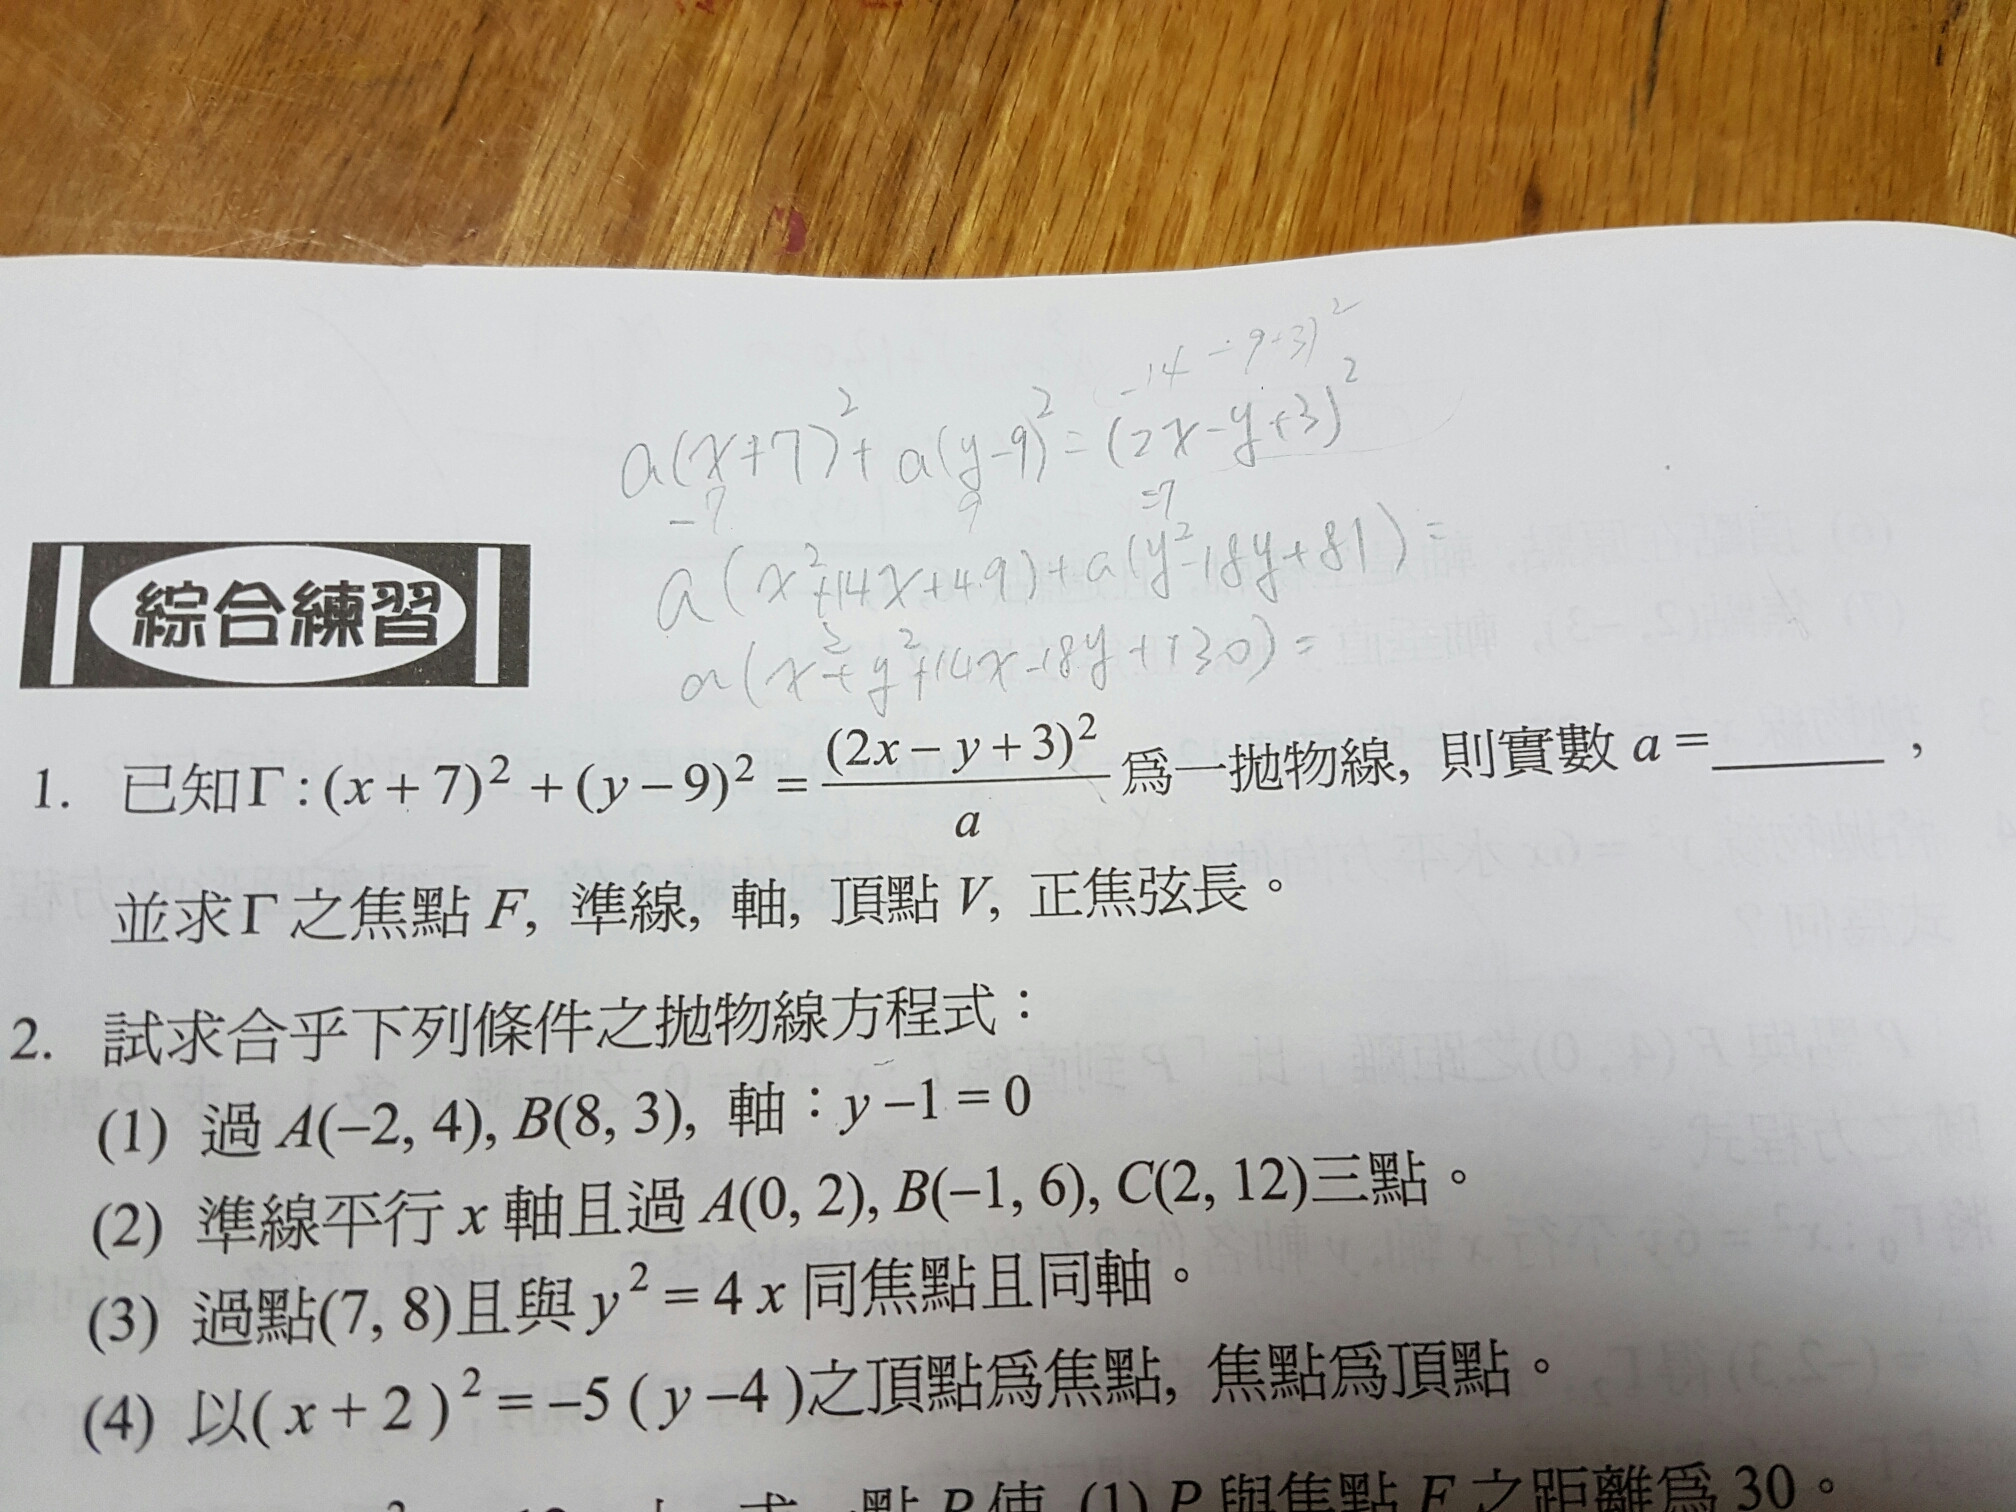 (-14-9+3)²
a(x+7)²+a(y-9)²=(2x-y+3)²
-7 9 =7
a(x²+14x+49)+a(y²-18y+81)=
a(x²+y²+14x-18y+130)=
綜合練習
1. 已知Γ:(x+7)²+(y-9)²=(2x-y+3)²/a 爲一拋物線, 則實數 a=______,
並求Γ之焦點 F, 準線, 軸, 頂點 V, 正焦弦長。
2. 試求合乎下列條件之拋物線方程式:
(1) 過 A(-2, 4), B(8, 3), 軸:y-1=0
(2) 準線平行 x 軸且過 A(0, 2), B(-1, 6), C(2, 12)三點。
(3) 過點(7, 8)且與 y²=4x 同焦點且同軸。
(4) 以(x+2)²=-5(y-4)之頂點爲焦點, 焦點爲頂點。
P 使 (1) P 與焦點 F 之距離爲 30。